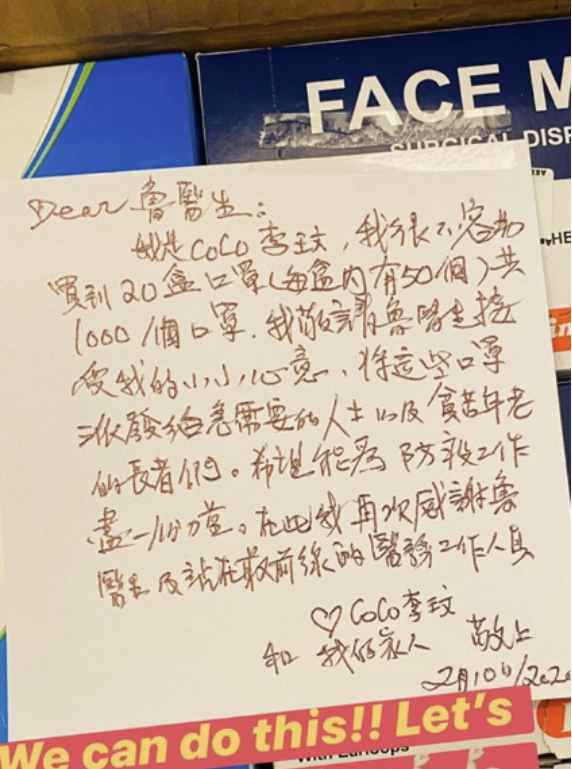 FACE M
SURGICAL DISP
Dear 魯醫生：
我是CoCo 李玟，我很不容易
買到20盒口罩(每盒內有50個)共
1000個口罩. 我敬請魯醫生接
受我的小小心意，將這些口罩
派發給急需要的人士以及貧苦年老
的長者們。希望能為防疫工作
盡一份力量。在此我再次感謝魯
醫生及站在最前線的醫護工作人員
♡CoCo李玟
和 我的家人 敬上
2月10日/2020
We can do this!! Let's
With Earloops